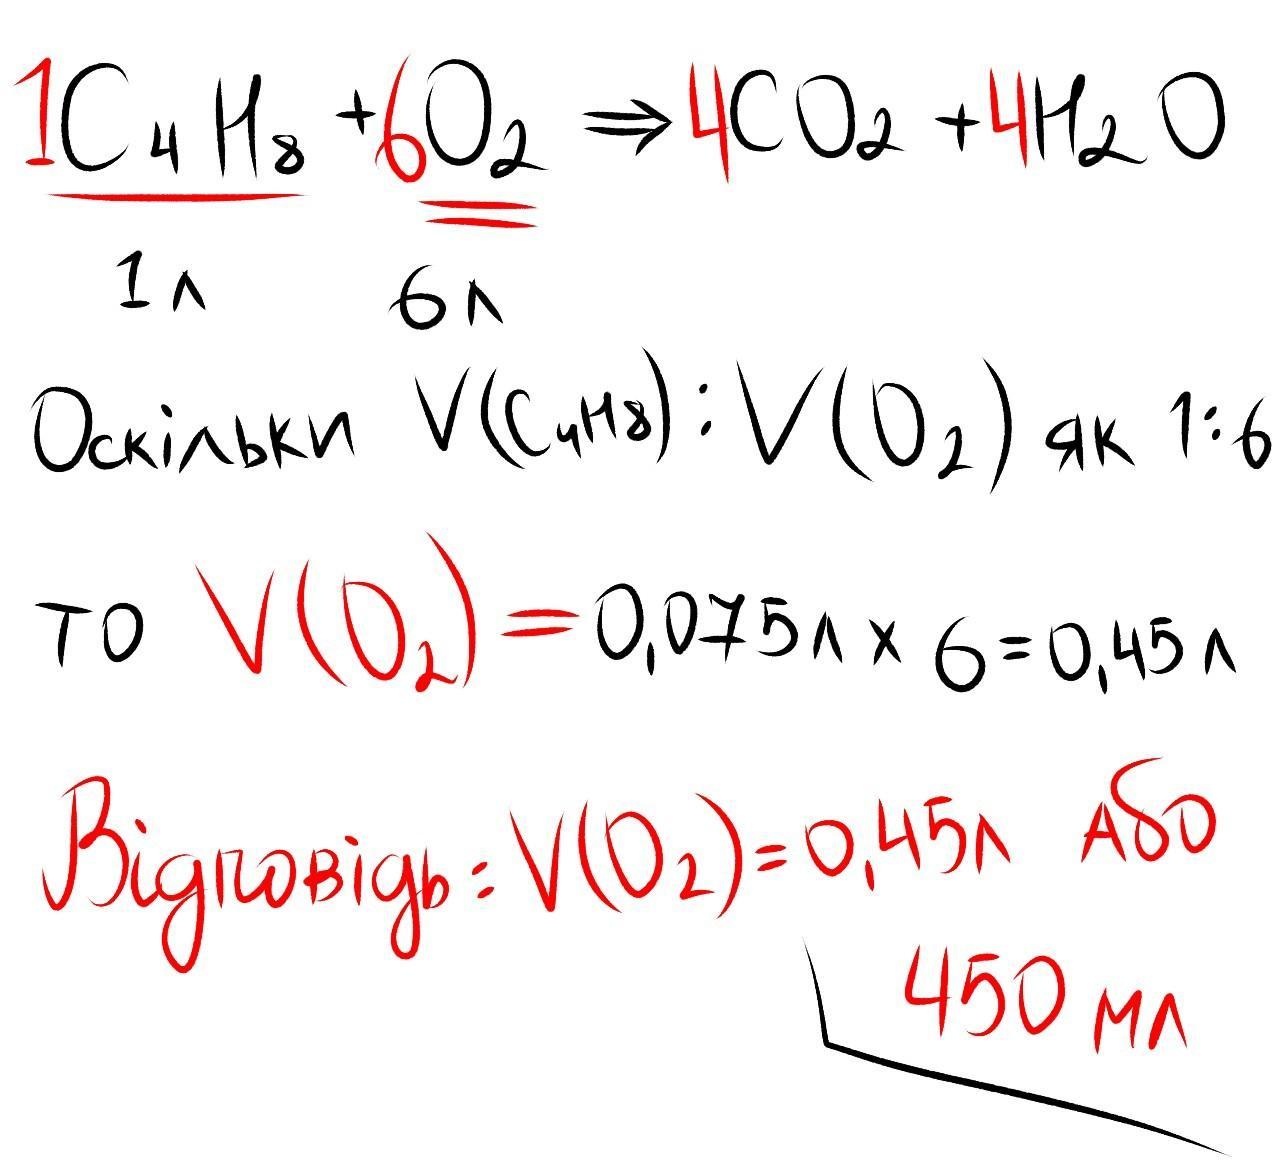 1C4H8 + 6O2 ⇒ 4CO2 + 4H2O
1л 6л
Оскільки V(C4H8) : V(O2) як 1:6
то V(O2) = 0,075л x 6 = 0,45л
Відповідь: V(O2) = 0,45л або
450 мл